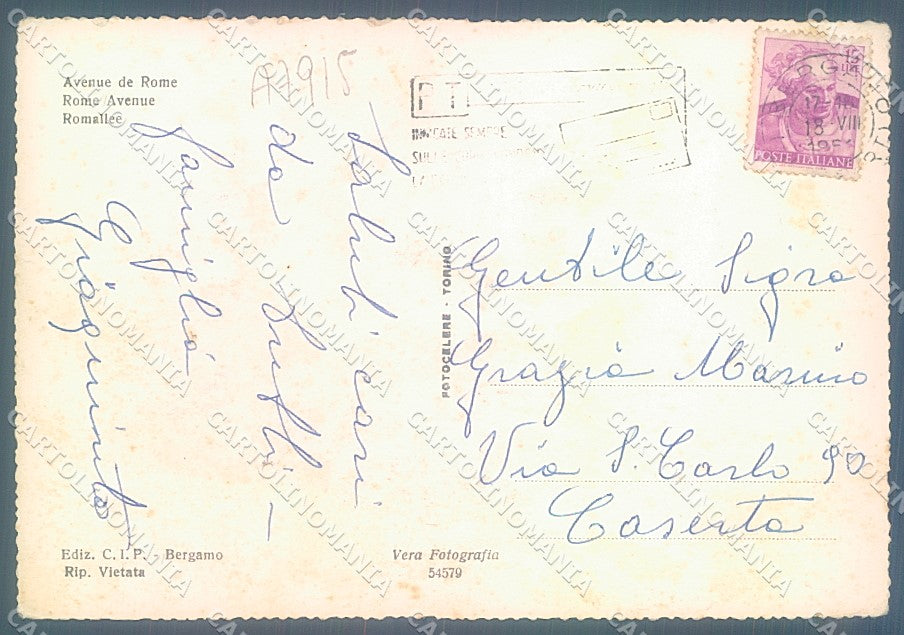 Avenue de Rome
Rome Avenue
Romallee
A7915
Saluti cari
da tutti -
famiglia
Giaquinto
PT
SEMPRE
POSTE ITALIANE
17-18
18 VIII
FOTOCELERE - TORINO
Gentile Sigra
Grazia Marino
Via S. Carlo 90
Caserta
Ediz. C.I.P. - Bergamo
Rip. Vietata
Vera Fotografia
54579
CARTOLINOMANIA